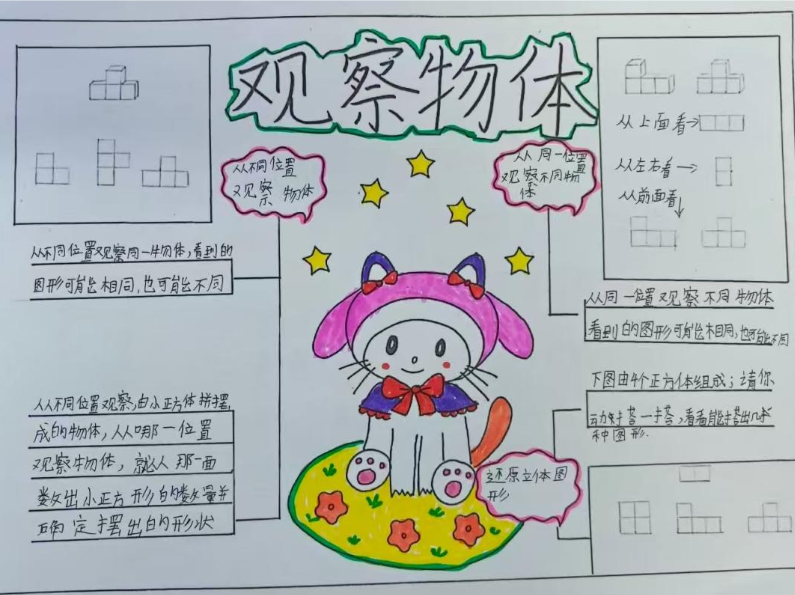 观察物体
从不同位置
观察物体
从不同位置观察同一物体，看到的
图形可能相同，也可能不同
从不同位置观察，由小正方体拼摆
成的物体，从哪一位置
观察物体，就从那一面
数出小正方形的数量并
确定摆出的形状
从同一位置
观察不同物
体
从上面看→
从左右看→
从前面看
从同一位置观察不同物体
看到的图形可能相同，也可能不同
下图由4个正方体组成；请你
动手搭一搭，看看能搭出几
种图形.
还原立体图
形